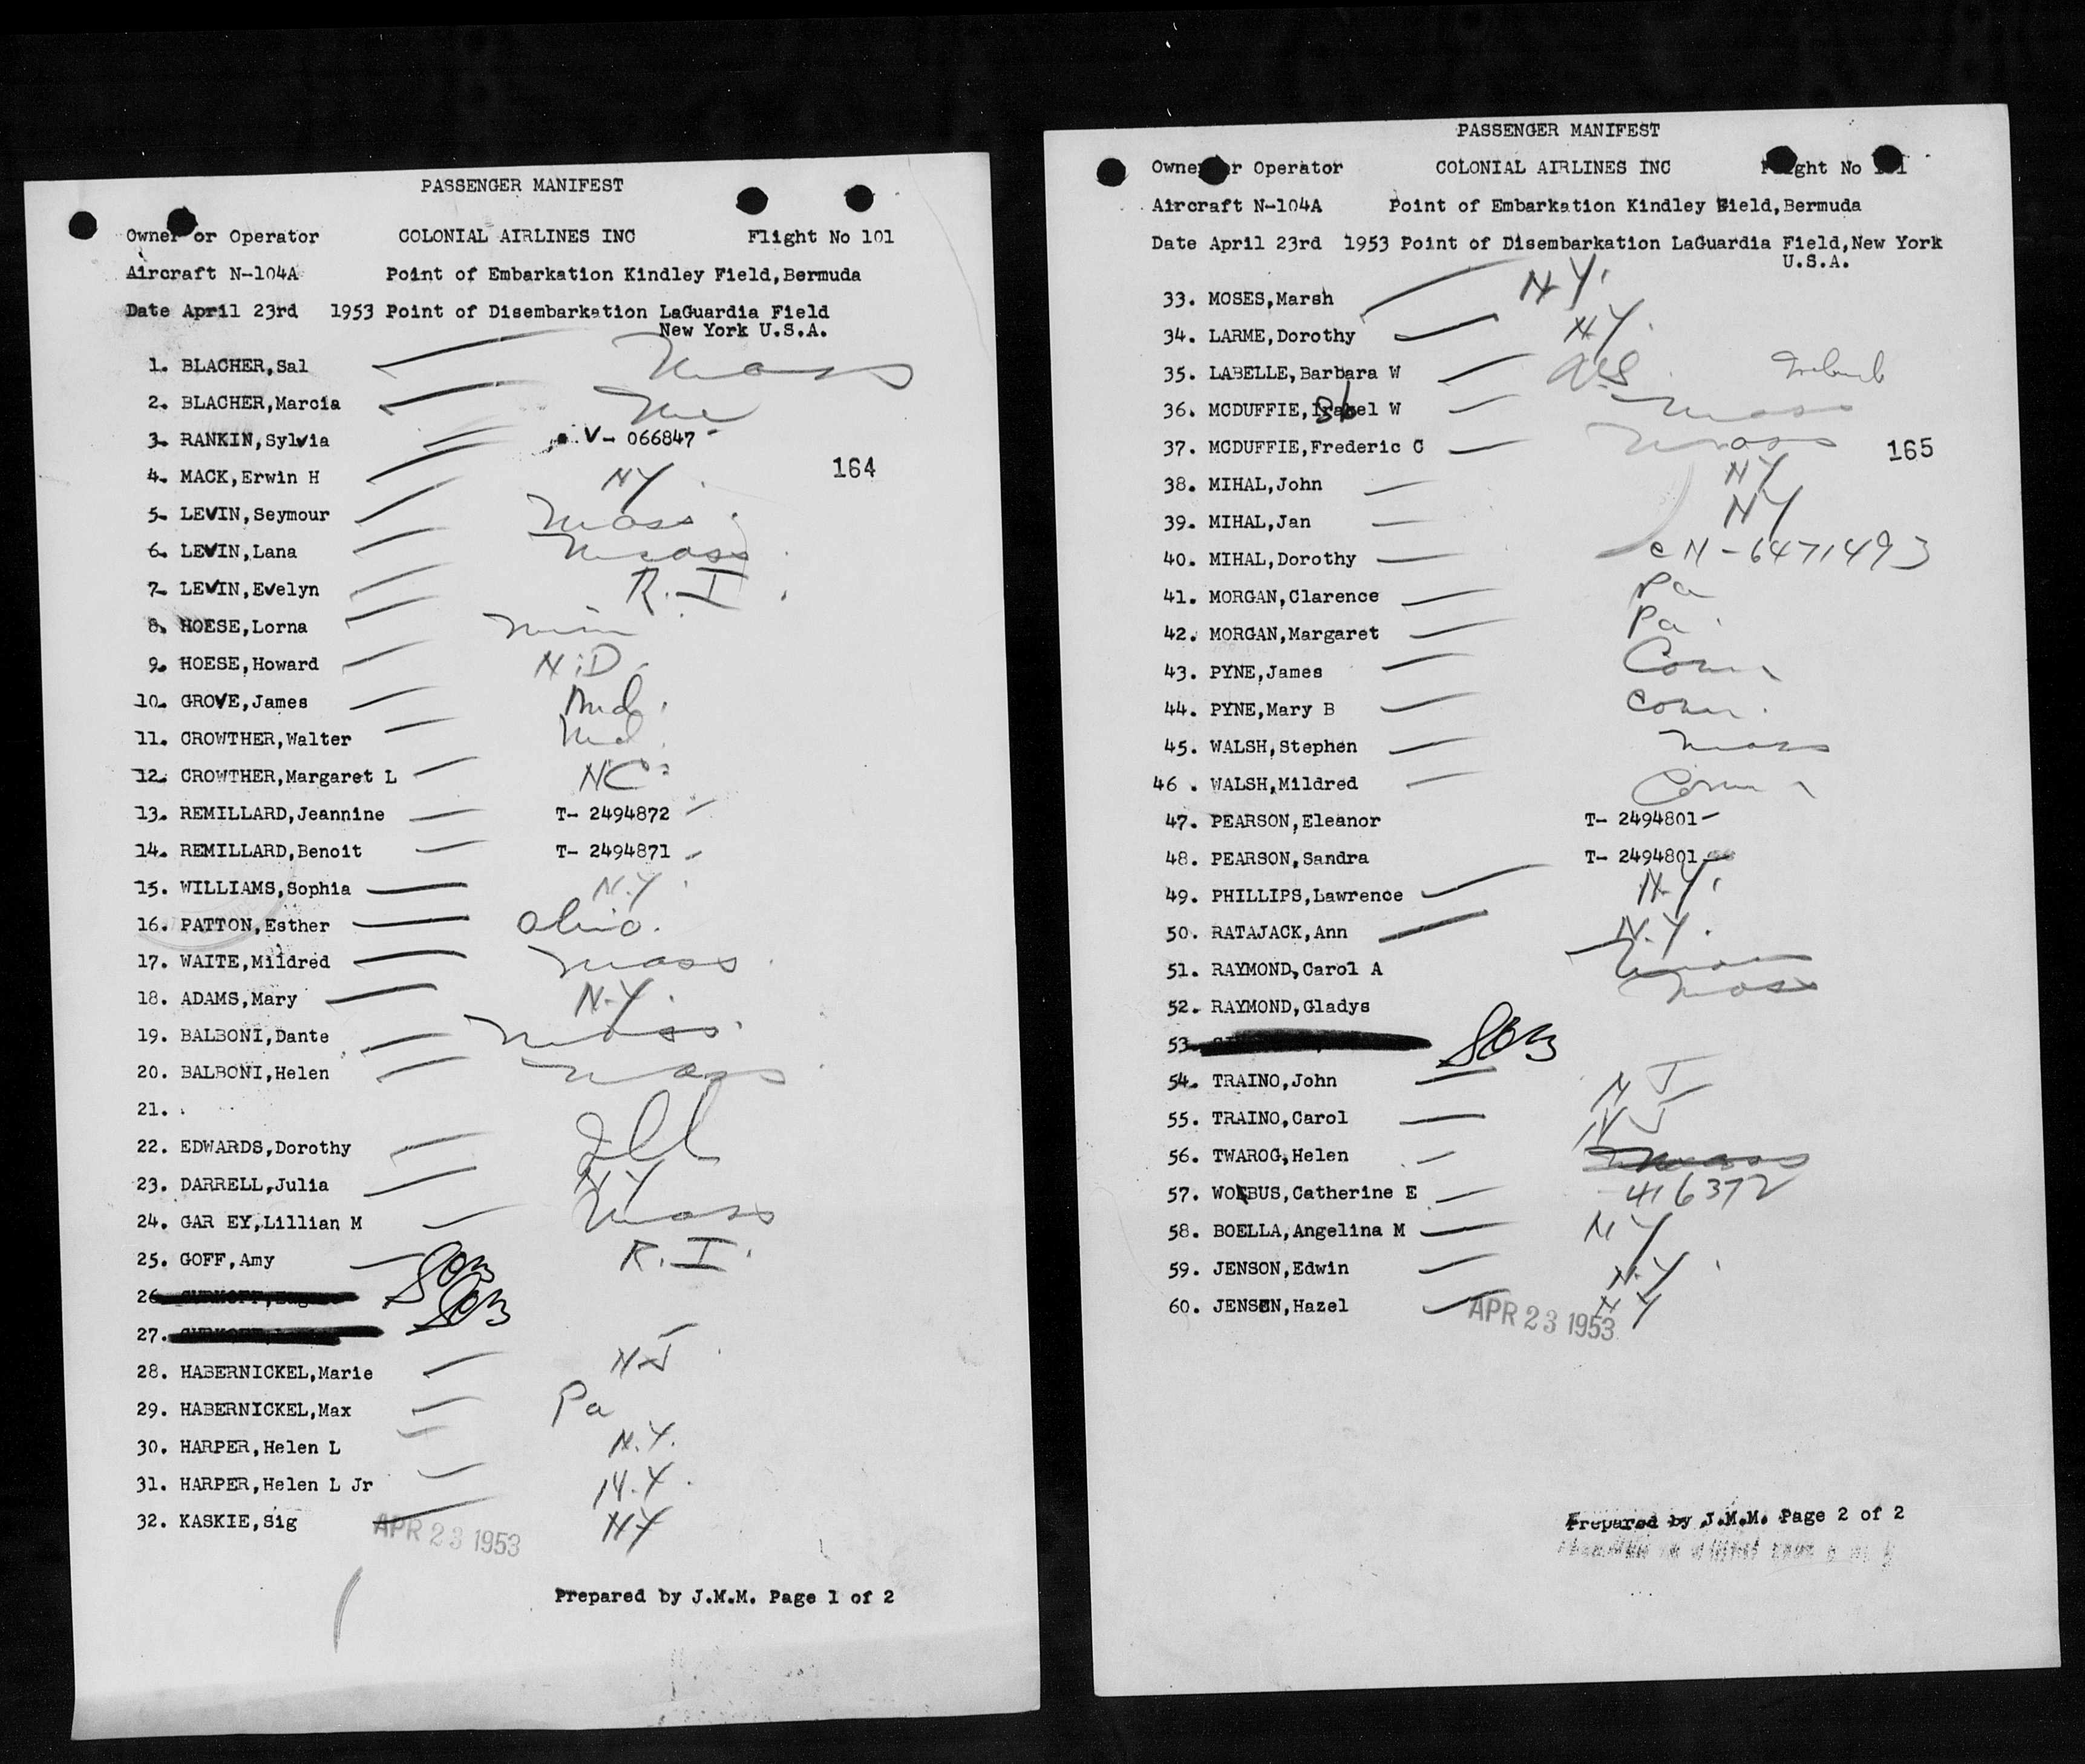 PASSENGER MANIFEST
Owner or Operator COLONIAL AIRLINES INC Flight No 101
Aircraft N-104A Point of Embarkation Kindley Field,Bermuda
Date April 23rd 1953 Point of Disembarkation LaGuardia Field
New York U.S.A.
1. BLACHER,Sal Mass
2. BLACHER,Marcia Me
3. RANKIN,Sylvia V- 066847
164
4. MACK,Erwin H NY
5. LEVIN,Seymour Mass.
6. LEVIN,Lana Mass
7. LEVIN,Evelyn R.I
8. HOESE,Lorna Min
9. HOESE,Howard N.D.
10. GROVE,James Md.
11. CROWTHER,Walter Md.
12. CROWTHER,Margaret L NC
13. REMILLARD,Jeannine T- 2494872
14. REMILLARD,Benoit T- 2494871
15. WILLIAMS,Sophia N.Y.
16. PATTON,Esther Ohio.
17. WAITE,Mildred Mass.
18. ADAMS,Mary N.Y.
19. BALBONI,Dante Mass.
20. BALBONI,Helen Mass
21.
22. EDWARDS,Dorothy Ill
23. DARRELL,Julia NY
24. GAR EY,Lillian M Mass
25. GOFF,Amy R.I.
26
27.
28. HABERNICKEL,Marie NJ
29. HABERNICKEL,Max Pa
30. HARPER,Helen L N.Y.
31. HARPER,Helen L Jr N.Y.
32. KASKIE,Sig NY
APR 23 1953
Prepared by J.M.M. Page 1 of 2
PASSENGER MANIFEST
Owner or Operator COLONIAL AIRLINES INC Flight No 101
Aircraft N-104A Point of Embarkation Kindley Field,Bermuda
Date April 23rd 1953 Point of Disembarkation LaGuardia Field,New York
U.S.A.
33. MOSES,Marsh N.Y.
34. LARME,Dorothy NY.
35. LABELLE,Barbara W
36. MCDUFFIE, W Mass
37. MCDUFFIE,Frederic C Mass
165
38. MIHAL,John NY
39. MIHAL,Jan NY
40. MIHAL,Dorothy CN-6471493
41. MORGAN,Clarence Pa
42. MORGAN,Margaret Pa.
43. PYNE,James Conn
44. PYNE,Mary B Conn.
45. WALSH,Stephen Mass
46 . WALSH,Mildred Conn
47. PEARSON,Eleanor T- 2494801
48. PEARSON,Sandra T- 2494801
49. PHILLIPS,Lawrence N.Y.
50. RATAJACK,Ann N.Y.
51. RAYMOND,Carol A Mass
52. RAYMOND,Gladys Mass
53.
54. TRAINO,John NJ
55. TRAINO,Carol NJ
56. TWAROG,Helen Mass
57. WOEBUS,Catherine E 416372
58. BOELLA,Angelina M NY
59. JENSON,Edwin N.Y.
60. JENSEN,Hazel NY
APR 23 1953
Prepared by J.M.M. Page 2 of 2